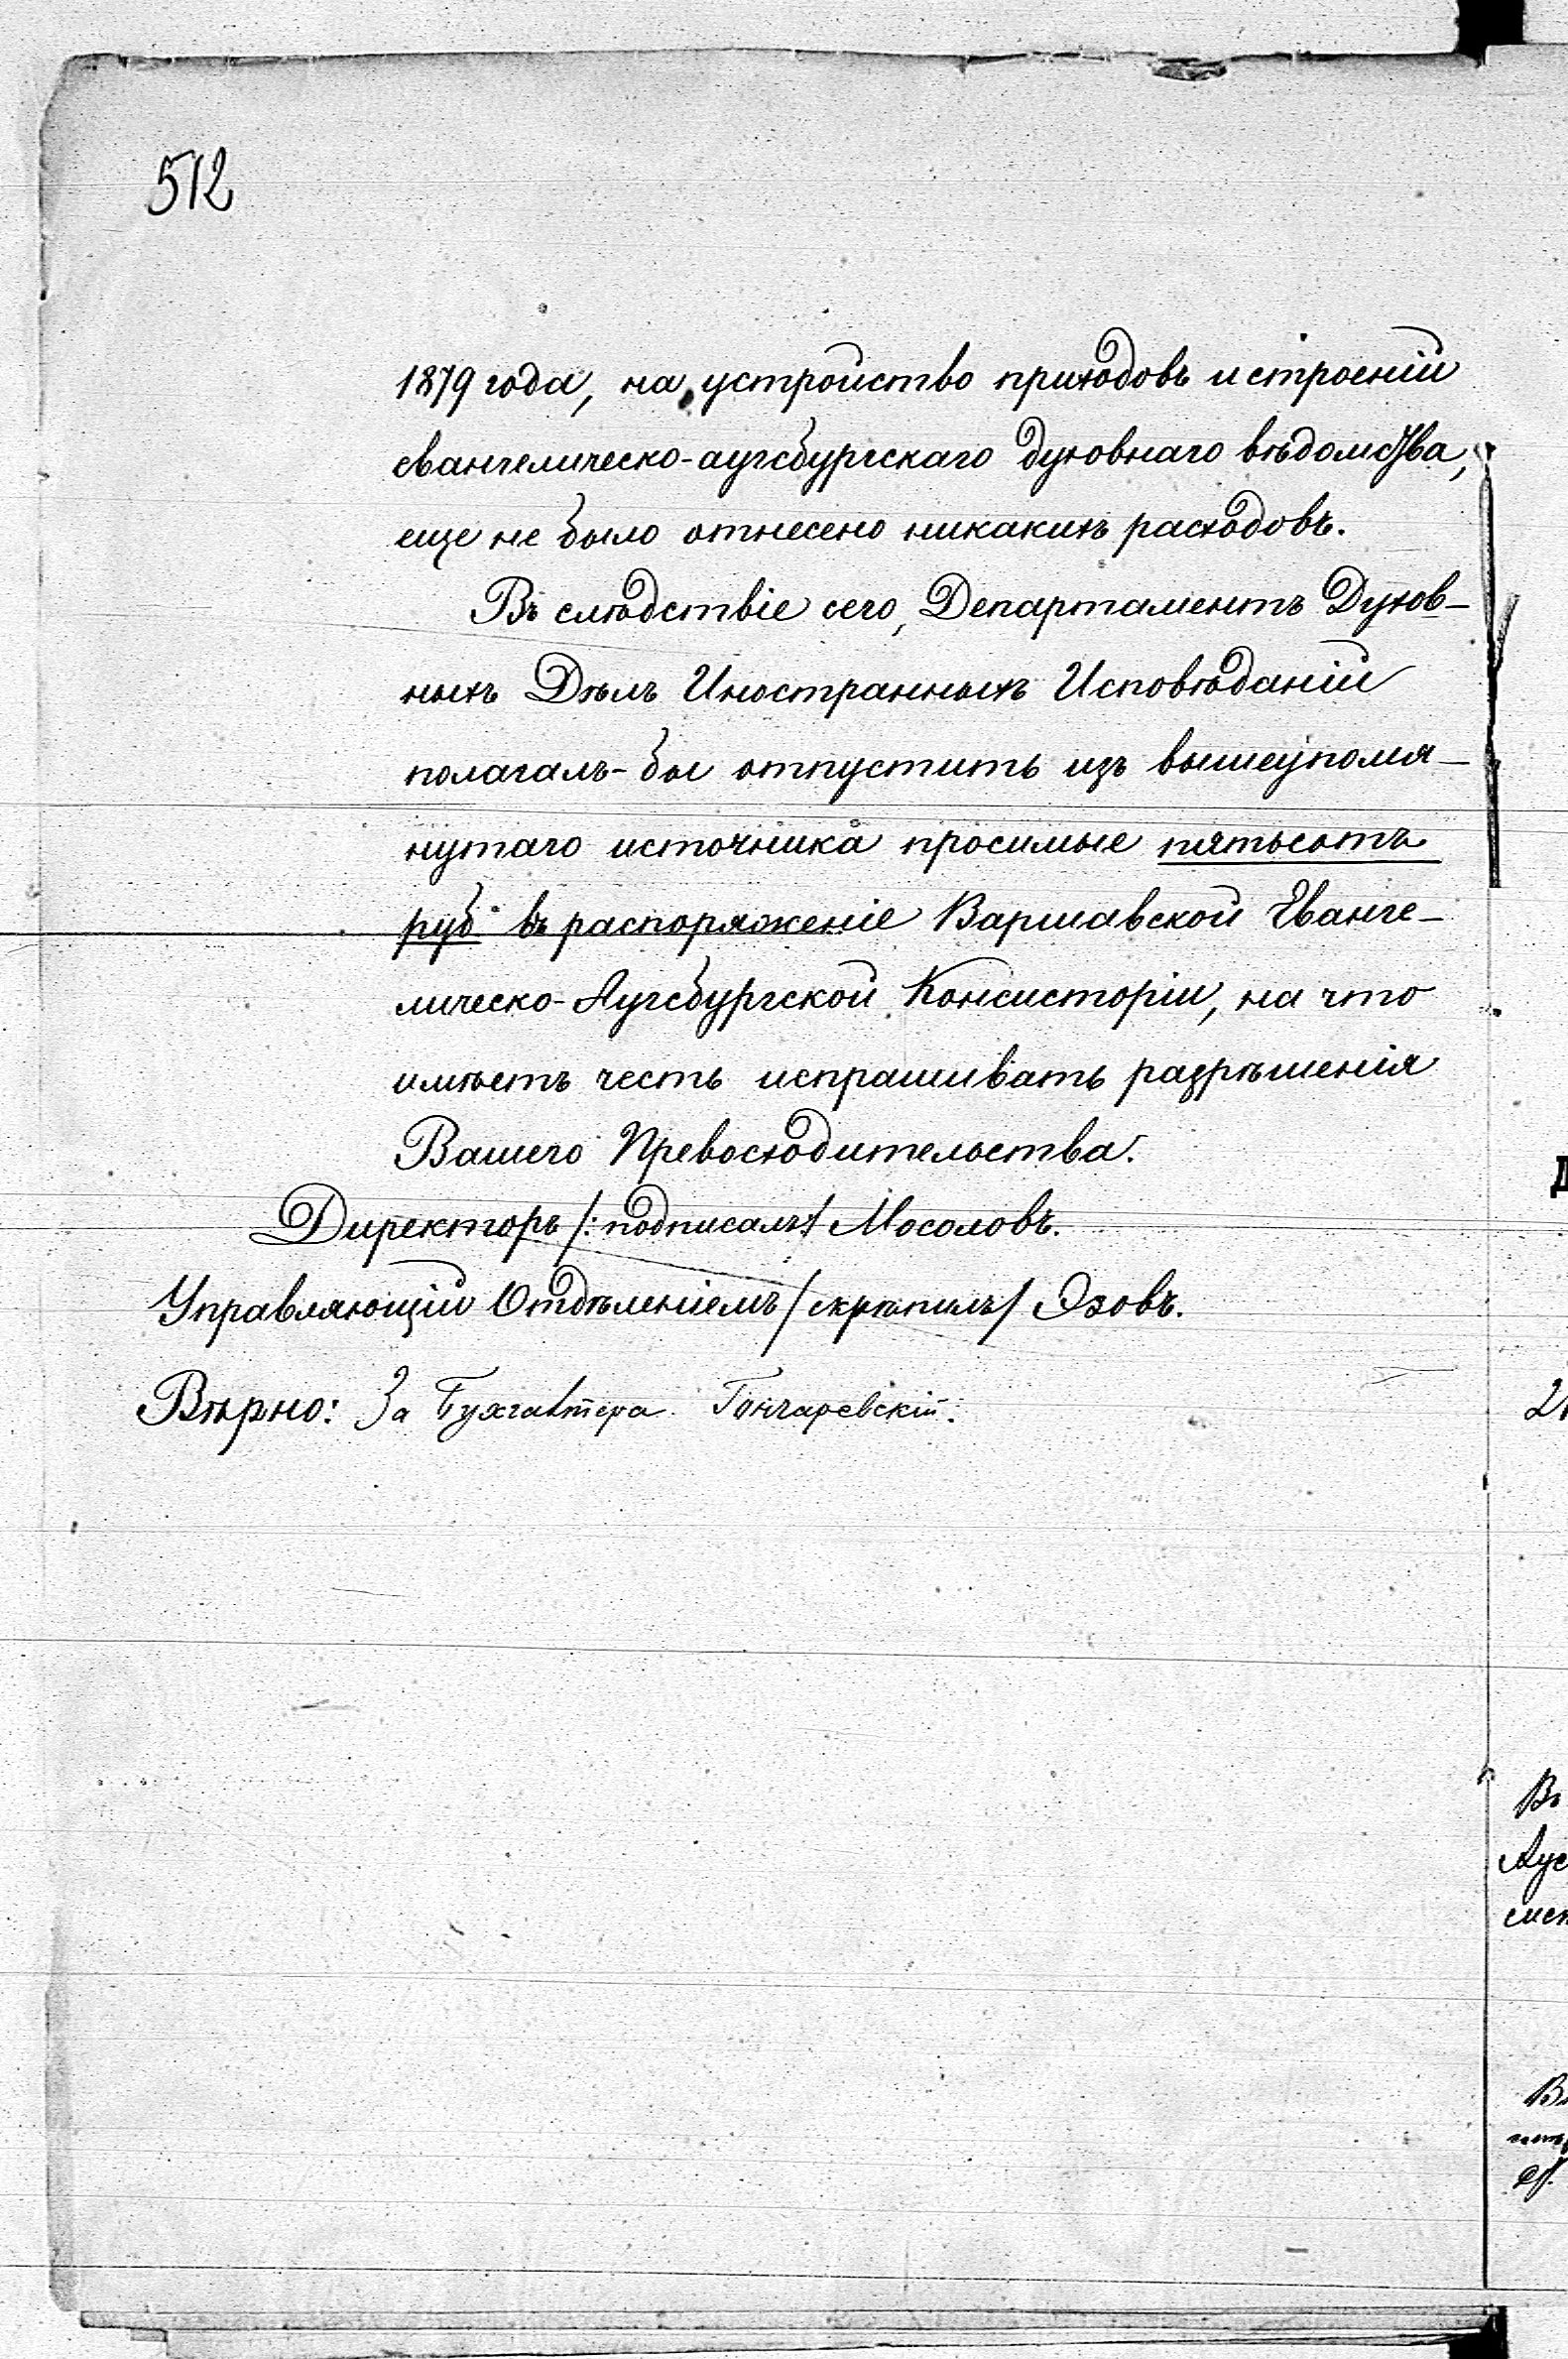 512
1879 года, на устройство приходовъ и строеній
евангелическо-аугсбургскаго духовнаго вѣдомства,
еще не было отнесено никакихъ расходовъ.
Въ слѣдствіе сего, Департаментъ Духов-
ныхъ Дѣлъ Иностранныхъ Исповѣданій
полагалъ-бы отпустить изъ вышеупомя-
нутаго источника просимые пятьсотъ
руб. въ распоряженіе Варшавской Еванге-
лическо-Аугсбургской Консисторіи, на что
имѣетъ честь испрашивать разрѣшенія
Вашего Превосходительства.
Директоръ /: подписалъ:/ Мосоловъ.
Управляющій Отдѣленіемъ /скрѣпилъ/ Эзовъ.
Вѣрно: За Бухгалтера Гончаревскій.